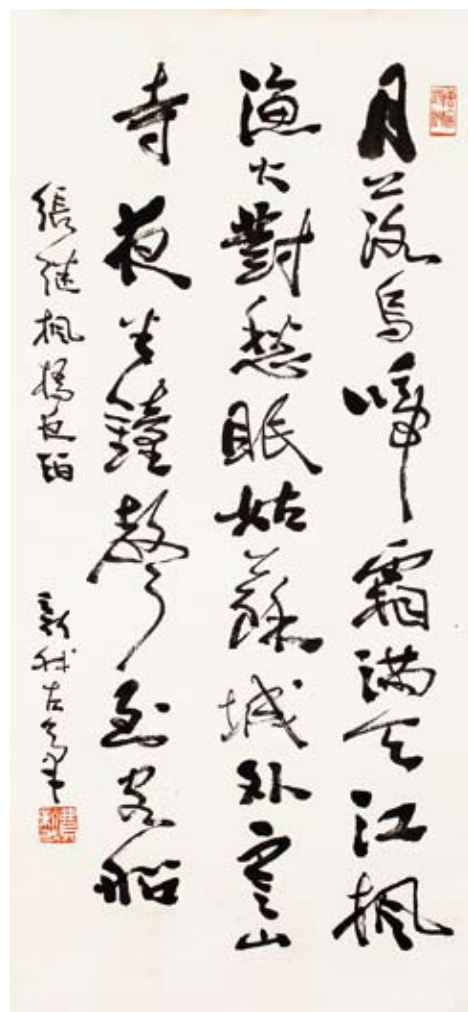 月落烏啼霜滿天江楓
漁火對愁眠姑蘇城外寒山
寺夜半鐘聲到客船
張繼楓橋夜泊
新我左筆